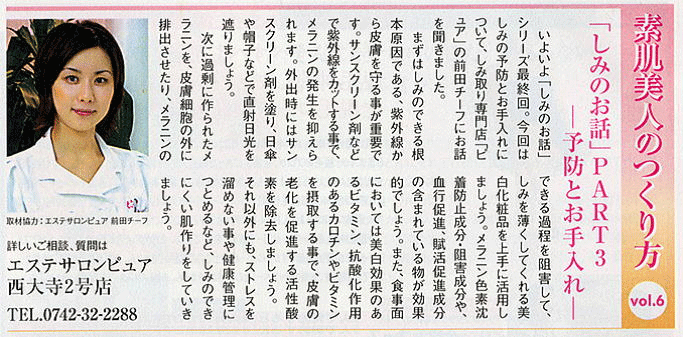 素肌美人のつくり方
vol.6
「しみのお話」PART3
―予防とお手入れ―
いよいよ「しみのお話」
シリーズ最終回。今回は
しみの予防とお手入れに
ついて、しみ取り専門店「ピ
ュア」の前田チーフにお話
を聞きました。
まずはしみのできる根
本原因である、紫外線か
ら皮膚を守る事が重要で
す。サンスクリーン剤など
で紫外線をカットする事で、
メラニンの発生を抑えら
れます。外出時にはサン
スクリーン剤を塗り、日傘
や帽子などで直射日光を
遮りましょう。
次に過剰に作られたメ
ラニンを、皮膚細胞の外に
排出させたり、メラニンの
できる過程を阻害して、
しみを薄くしてくれる美
白化粧品を上手に活用し
ましょう。メラニン色素沈
着防止成分・阻害成分や、
血行促進、賦活促進成分
の含まれている物が効果
的でしょう。また、食事面
においては美白効果のあ
るビタミン、抗酸化作用
のあるカロチンやビタミン
を摂取する事で、皮膚の
老化を促進する活性酸
素を除去しましょう。
それ以外にも、ストレスを
溜めない事や健康管理に
つとめるなど、しみのでき
にくい肌作りをしていき
ましょう。
取材協力：エステサロンピュア 前田チーフ
詳しいご相談、質問は
エステサロンピュア
西大寺2号店
TEL.0742-32-2288